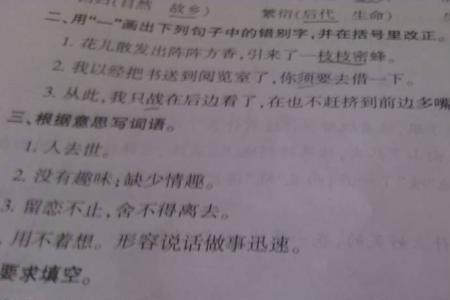 (自然 故乡) 繁衍(后代 生命)
二、用“—”画出下列句子中的错别字,并在括号里改正。
1. 花儿散发出阵阵方香,引来了一枝枝密蜂。
2. 我以经把书送到阅览室了,你须要去借一下。
3. 从此,我只战在后边看了,在也不赶挤到前边多嘴
三、根据意思写词语。
1. 人去世。
2. 没有趣味;缺少情趣。
3. 留恋不止,舍不得离去。
用不着想。形容说话做事迅速。
要求填空。